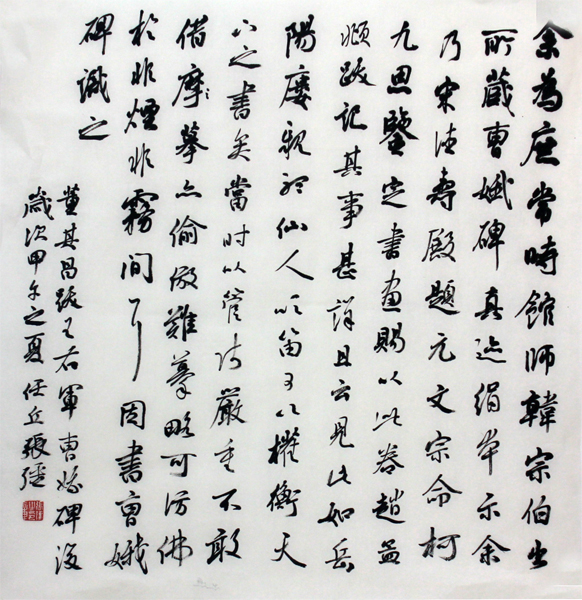 余為庶常時館師韓宗伯出
所藏曹娥碑真迹絹本示余
乃宋德壽殿題元文宗命柯
九思鑒定書畫賜以此卷趙孟
頫跋記其事甚詳且云見此如岳
陽樓親聽仙人吹笛可以權衡天
下之書矣當時以管師嚴重不敢
借摩摹亦偷做難摹略可仿佛
於非煙非霧間耳因書曹娥
碑識之
董其昌跋王右軍曹娥碑後
歲次甲午之夏任丘張